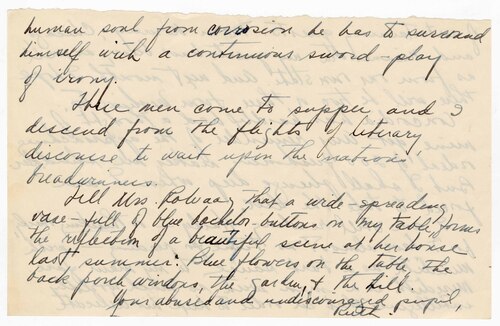 human soul from corrosion he has to surround
himself with a continuous sword-play
of irony.
Three men come to supper and I
descend from the flights of literary
discourse to wait upon the nation's
breadwinners.
Tell Mrs. that a wide-spreading
vase-full of blue bachelor-buttons on my table, forms
the reflection of a beautiful scene at her house
last summer: Blue flowers on the table, the
back porch windows, the garden, & the hill.
Your abused and undiscouraged pupil,
Ruth.